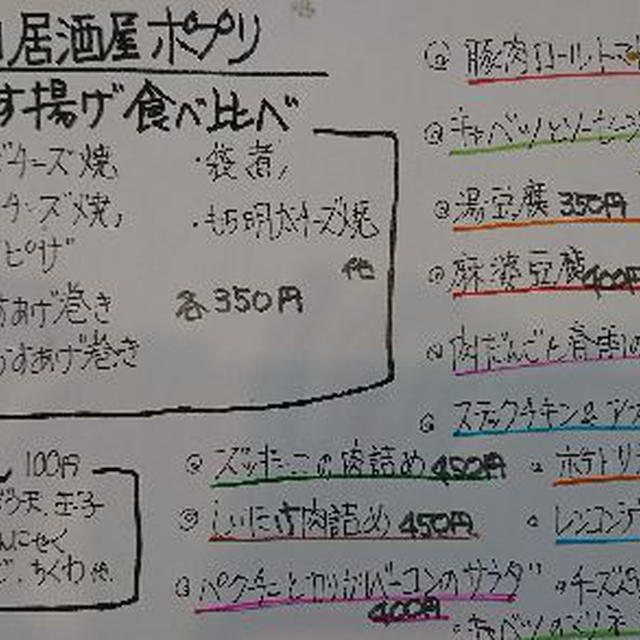 居酒屋 ポプリ
す揚げ 食べ比べ
チーズ焼
・袋煮
チーズ焼
・もち明太チーズ焼
ピザ
他
あげ巻き
各350円
すあげ巻き
豚肉ロールトマト
キャベツとソーセージ
湯豆腐 350円
麻婆豆腐 400円
肉だんごと春雨の
スティックチキン&
100円
天、玉子
んにゃく
ちくわ 他
ズッキーニの肉詰め 450円
ポテトサ
しいたけ肉詰め 450円
レンコン
パクチーとカリカリベーコンのサラダ
400円
チーズ
キャベツのマリネ